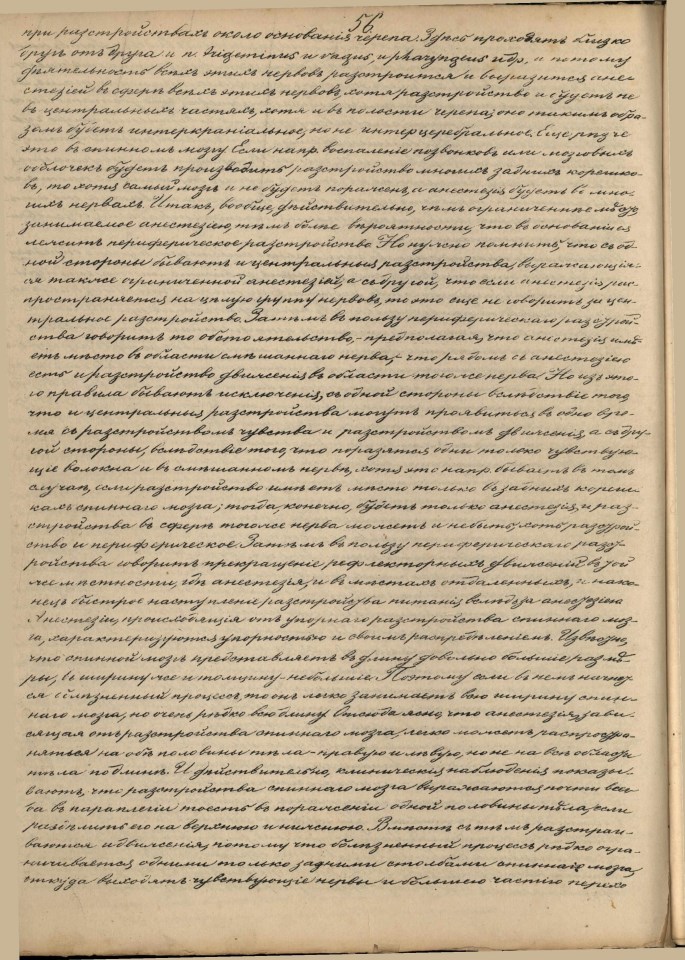 56
при разстройствахъ около основанія черепа. Здѣсь проходятъ близко
другъ отъ друга и n. trigeminus и vagus, и pharyngeus и др., и потому
дѣятельность всѣхъ этихъ нервовъ разстроится и выразится ане-
стезіей въ сферѣ всѣхъ этихъ нервовъ, хотя разстройство и будетъ не
въ центральныхъ частяхъ, хотя и въ полости черепа; оно такимъ обра-
зомъ будетъ интеркраніальное, но не интерцеребральное. Еще рѣзче
это въ спинномъ мозгу. Если напр. воспаленіе позвонковъ или мозговыхъ
оболочекъ будетъ производить разстройство многихъ заднихъ корешко-
въ, то хотя самый мозгъ и не будетъ пораженъ, а анестезія будетъ въ мно-
гихъ нервахъ. Итакъ, вообще, дѣйствительно, чѣмъ ограниченнѣе мѣсто
занимаемое анестезіею, тѣмъ болѣе вѣроятности, что въ основаніи ея
лежитъ периферическое разстройство. Но нужно помнить, что съ од-
ной стороны бываютъ и центральныя разстройства, выражающія-
ся также ограниченной анестезіей, а съ другой, что если анестезія рас-
пространяется на цѣлую группу нервовъ, то это еще не говоритъ за цен-
тральное разстройство. Затѣмъ въ пользу периферическаго разстрой-
ства говоритъ то обстоятельство, – предполагая, что анестезія имѣ-
етъ мѣсто въ области смѣшаннаго нерва, – что рядомъ съ анестезіею
есть и разстройство движенія въ области того же нерва. Но изъ это-
го правила бываютъ исключенія, съ одной стороны вслѣдствіе того
что и центральныя разстройства могутъ проявиться въ одно вре-
мя съ разстройствомъ чувства и разстройствомъ движенія, а съ дру-
гой стороны, вслѣдствіе того, что поразятся одни только чувствую-
щіе волокна и въ смѣшанномъ нервѣ, хотя это напр. бываетъ въ томъ
случаѣ, если разстройство имѣетъ мѣсто только въ заднихъ кореш-
кахъ спиннаго мозга; тогда, конечно, будетъ только анестезія, и раз-
стройства въ сферѣ того же нерва можетъ и не быть, хотя разстрой-
ство и периферическое. Затѣмъ въ пользу периферическаго разст-
ройства говоритъ прекращеніе рефлекторныхъ движеній въ той
же мѣстности, гдѣ анестезія, и въ мѣстахъ отдаленныхъ, и нако-
нецъ быстрое наступленіе разстройства питанія вслѣдъ за анестезіею
Анестезіи, происходящія отъ упорнаго разстройства спиннаго моз-
га, характеризуются упорностью и своимъ распредѣленіемъ. Извѣстно,
что спинной мозгъ представляетъ въ длину довольно большіе размѣ-
ры, въ ширину же и толщину – небольшіе. Поэтому если въ немъ начнет-
ся болѣзненный процессъ, то онъ легко занимаетъ всю ширину спин-
наго мозга, но очень рѣдко всю длину. Отсюда ясно, что анестезія, зави-
сящая отъ разстройства спиннаго мозга, легко можетъ распростра-
няться на обѣ половины тѣла – правую и лѣвую, но не на всѣ области
тѣла по длинѣ. И дѣйствительно, клиническія наблюденія показы-
ваютъ, что разстройства спиннаго мозга выражаются почти все-
гда въ параплегіи тоесть въ пораженіи одной половины тѣла, если
раздѣлить его на верхнюю и нижнюю. Вмѣстѣ съ тѣмъ разстраи-
ваются и движенія, потому что болѣзненный процессъ рѣдко огра-
ничивается одними только задними столбами спиннаго мозга,
откуда выходятъ чувствующіе нервы и большею частію перехо